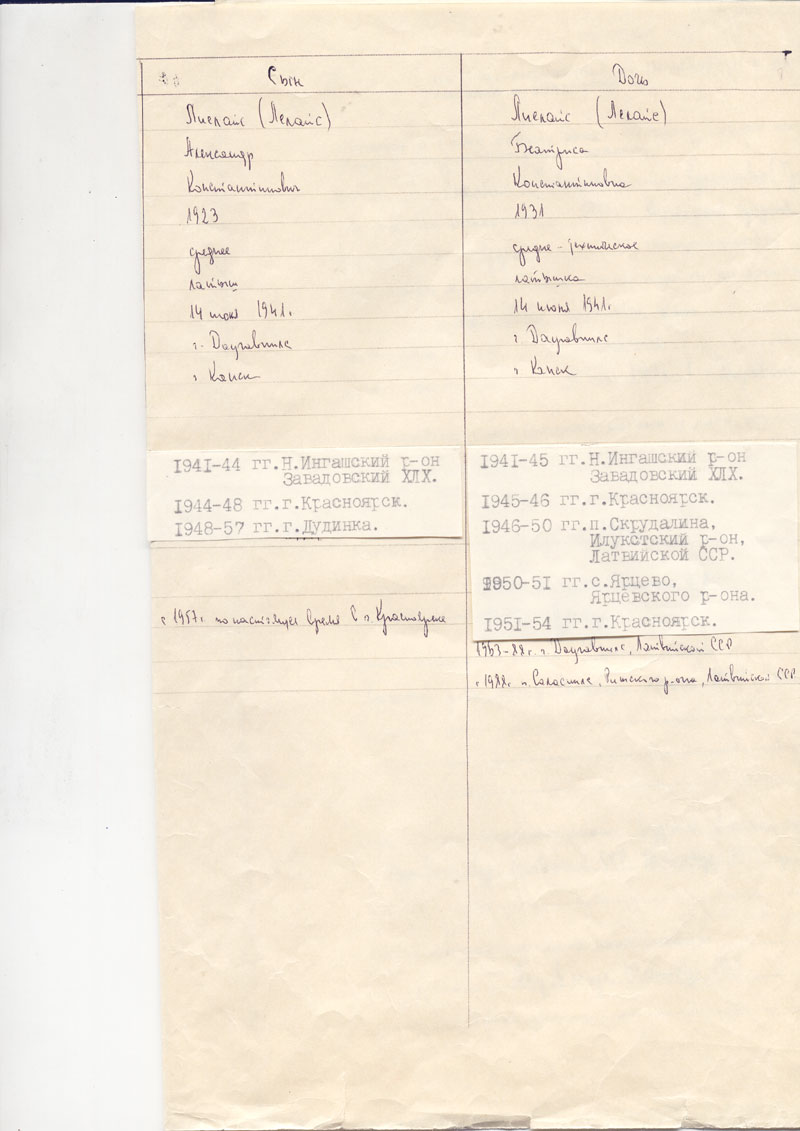 Сын
Лиелайс (Лелайс)
Александр
Константинович
1923
среднее
латыш
14 июня 1941г.
г. Даугавпилс
г. Канск
1941-44 гг. Н.Ингашский р-он
Завадовский ХЛХ.
1944-48 гг. г.Красноярск.
1948-57 гг. г.Дудинка.
с 1957г. по настоящее время г. Красноярск
Дочь
Лиелайс (Лелайс)
Беатриса
Константиновна
1931
средне-техническое
латышка
14 июня 1941г.
г. Даугавпилс
г. Канск
1941-45 гг. Н.Ингашский р-он
Завадовский ХЛХ.
1945-46 гг. г.Красноярск.
1946-50 гг. п.Скрудалина,
Илукстский р-он,
Латвийской ССР.
1950-51 гг. с.Ярцево,
Ярцевского р-она.
1951-54 гг. г.Красноярск.
1963-88г. г. Даугавпилс, Латвийской ССР
с 1988г. п. Саласпилс, Рижского р-она, Латвийской ССР